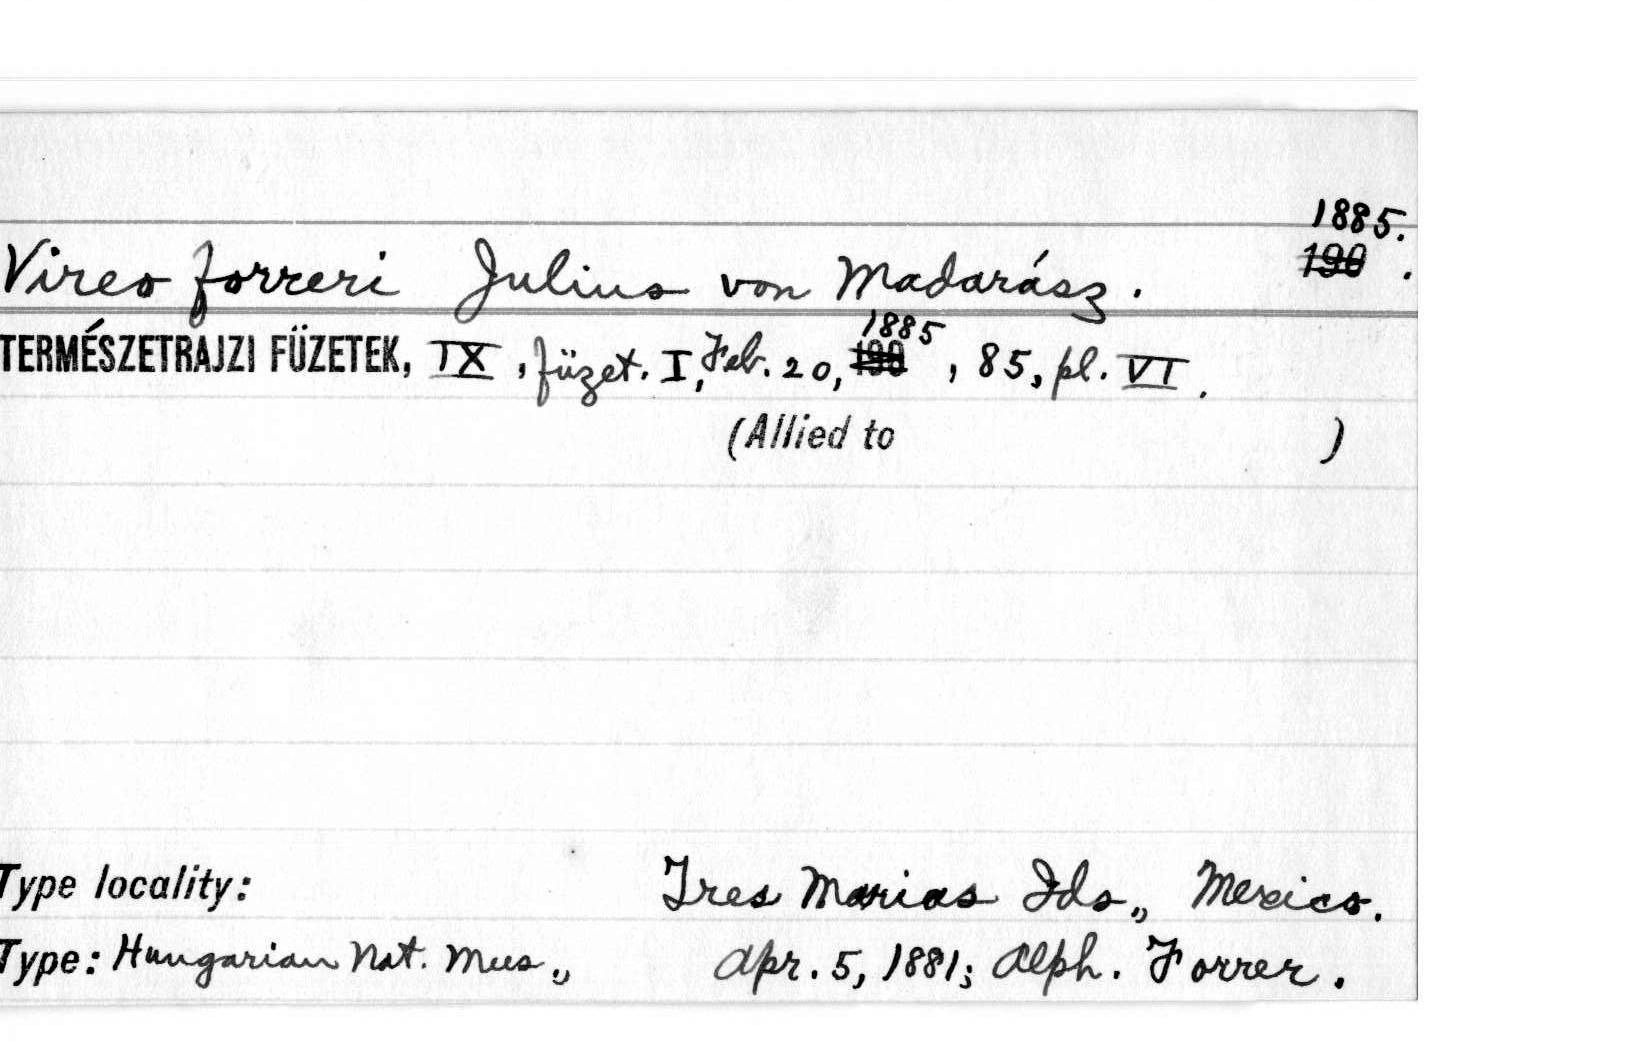 1885.
Vireo forreri Julius von Madarász. 190 .
1885
TERMÉSZETRAJZI FÜZETEK, IX, füzet. I, Feb. 20, 190 , 85, pl. VI.
(Allied to )
Type locality: Tres Marias Ids., Mexico.
Type: Hungarian Nat. Mus., Apr. 5, 1881; Alph. Forrer.